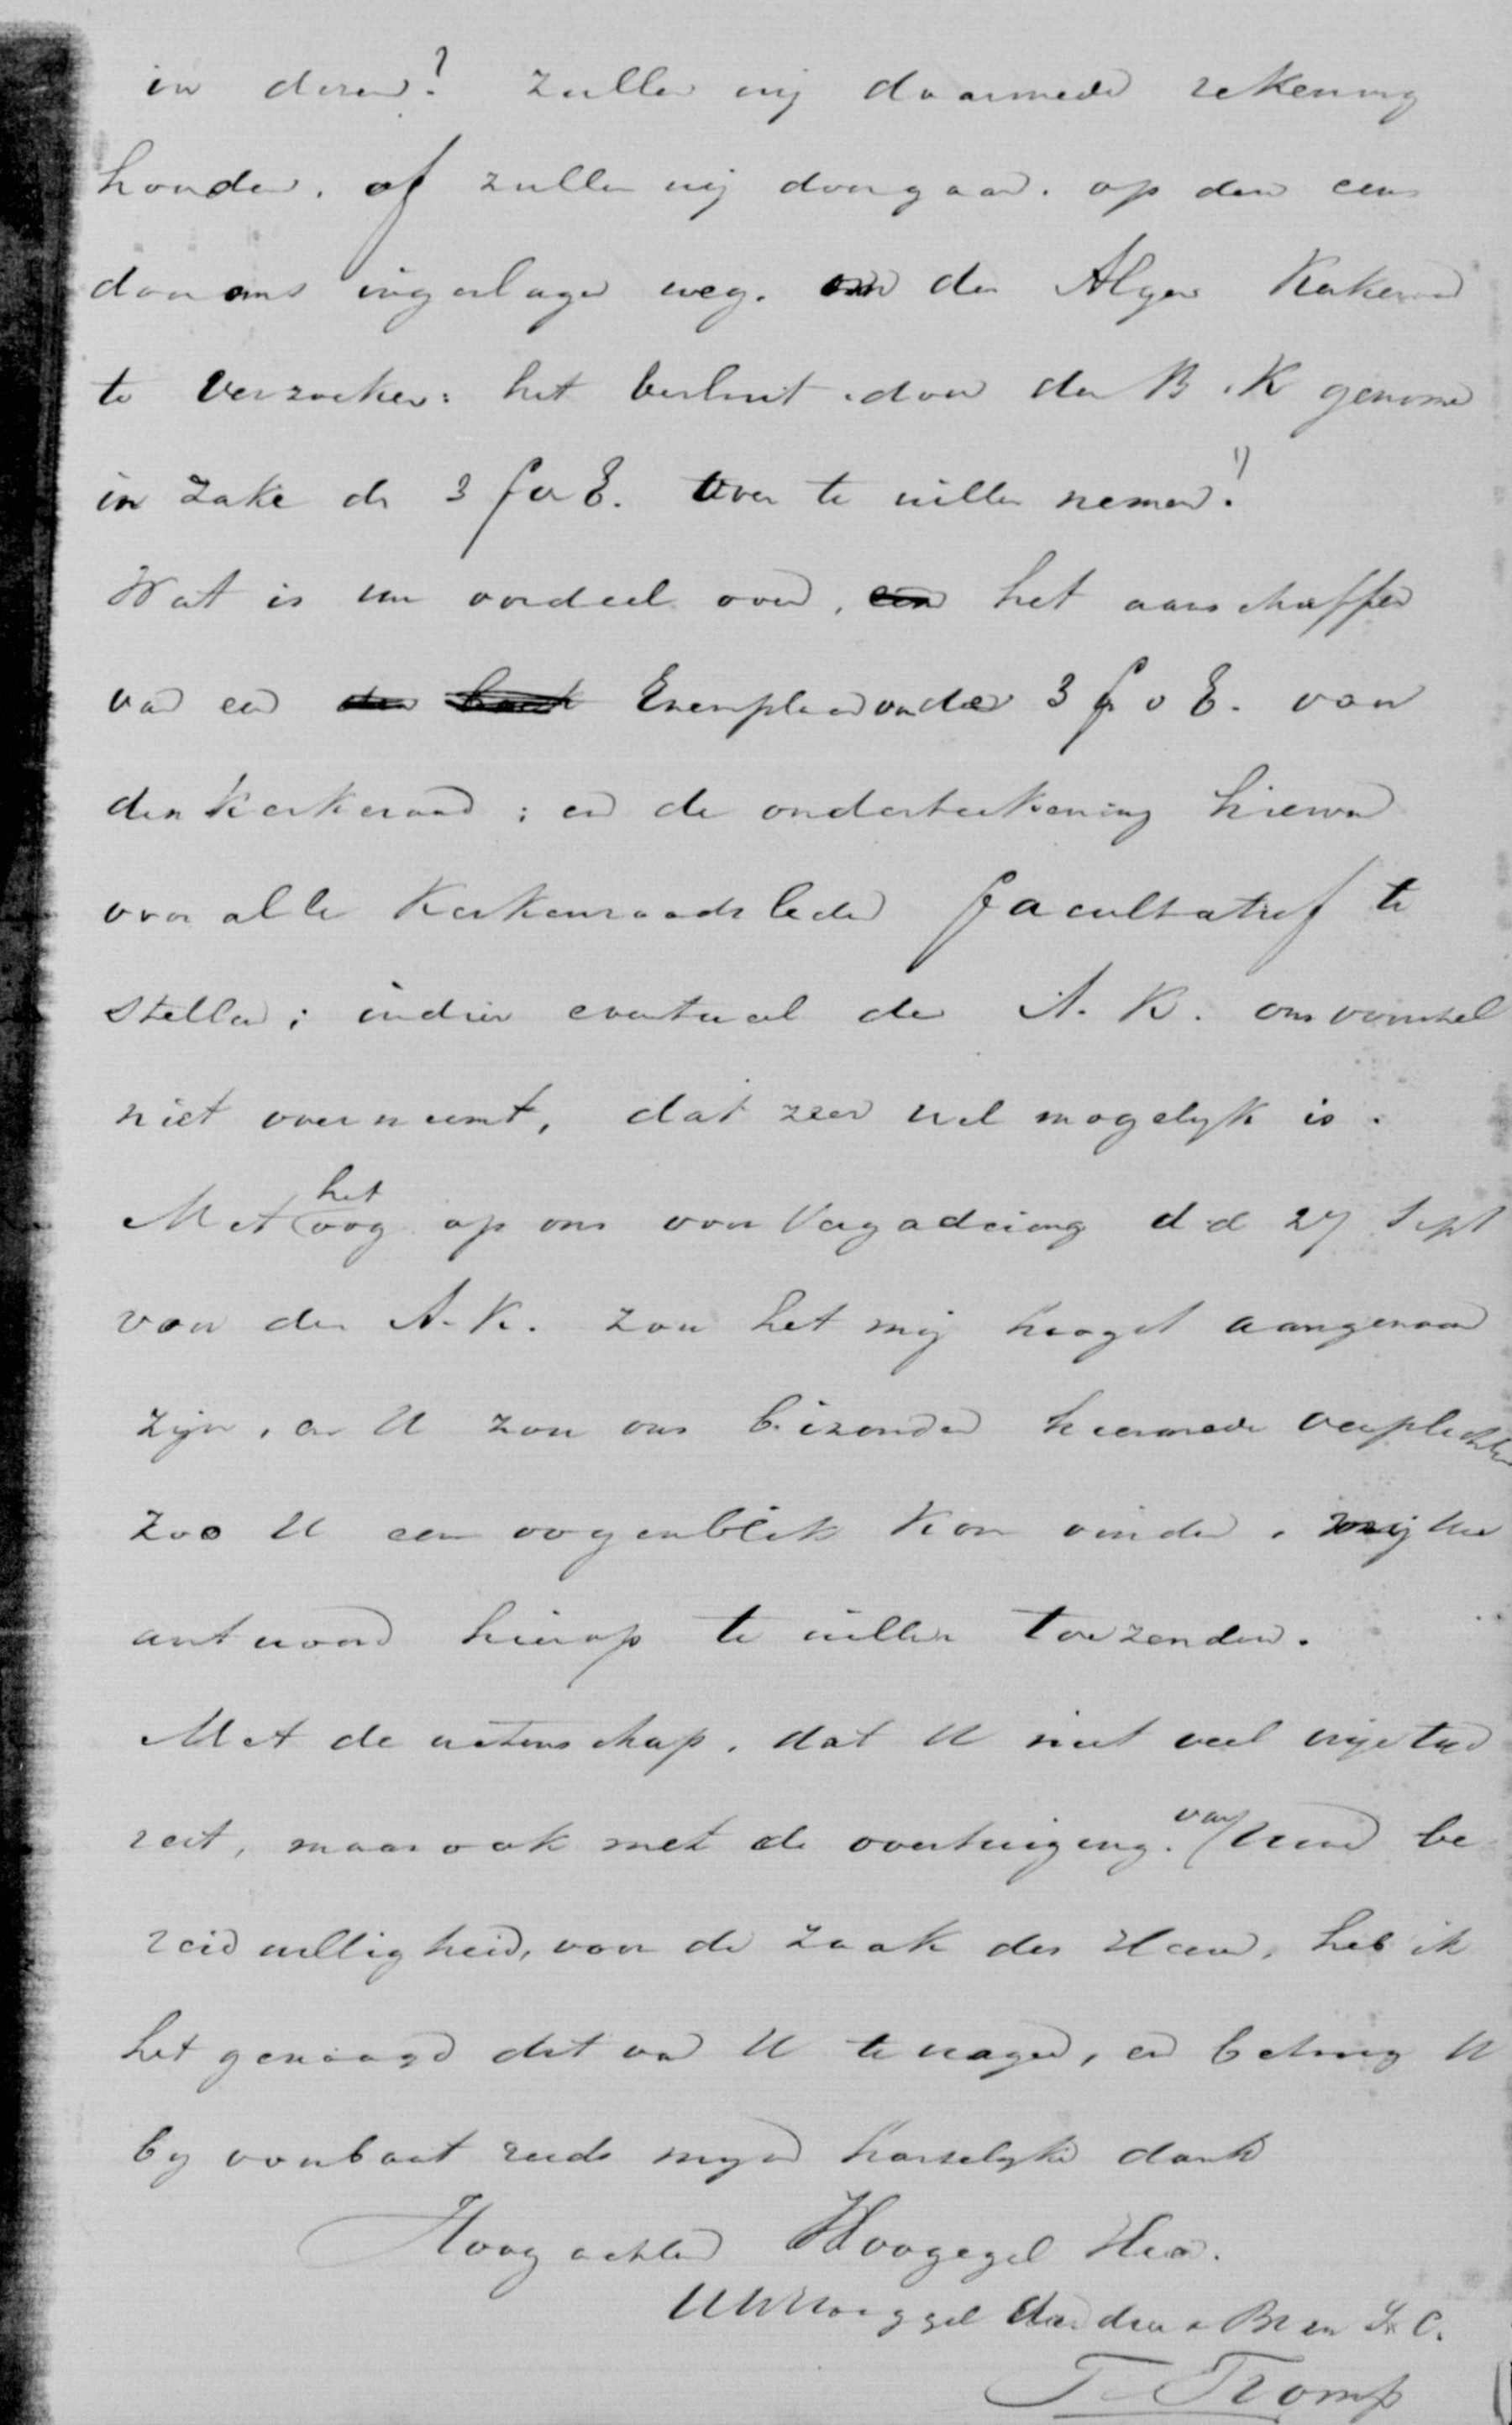 in dezen? Zullen wij daarmede rekening
houden, of zullen wij doorgaan. op den eens
door ons ingeslagen weg. den Algem Kerkeraad
te verzoeken: het besluit door den B.K genomen
in zake de 3 f v E. over te willen nemen?
Wat is uw oordeel over, het aanschaffen
van een Exemplaar van de 3 f v E. van
den kerkeraad; en de onderteekening hiervan
voor alle Kerkenraadsleden facultatief te
stellen; indien eventueel de A.K. ons voorstel
niet overneemt, dat zeer wel mogelyk is.
Met het oog op ons voor Vergadering d.d 27 Sept
van den A.K. zou het mij hoogst aangenaam
zijn, en U zou ons bizonder hiermede verplichten
Zoo U een oogenblik kon vinden, mij Uw
antwoord hierop te willen toezenden.
Met de wetenschap, dat U niet veel vrije tijd
rest, maar ook met de overtuiging. van Uwe be
reidwilligheid, voor de zaak des Heeren, heb ik
het gewaagd dit van U te vragen, en betuig U
by voorbaat reeds myn hartelyke dank
Hoogachtend Hoogegel Heer.
UWHooggel dw dr en Br in X C.
T Tromp